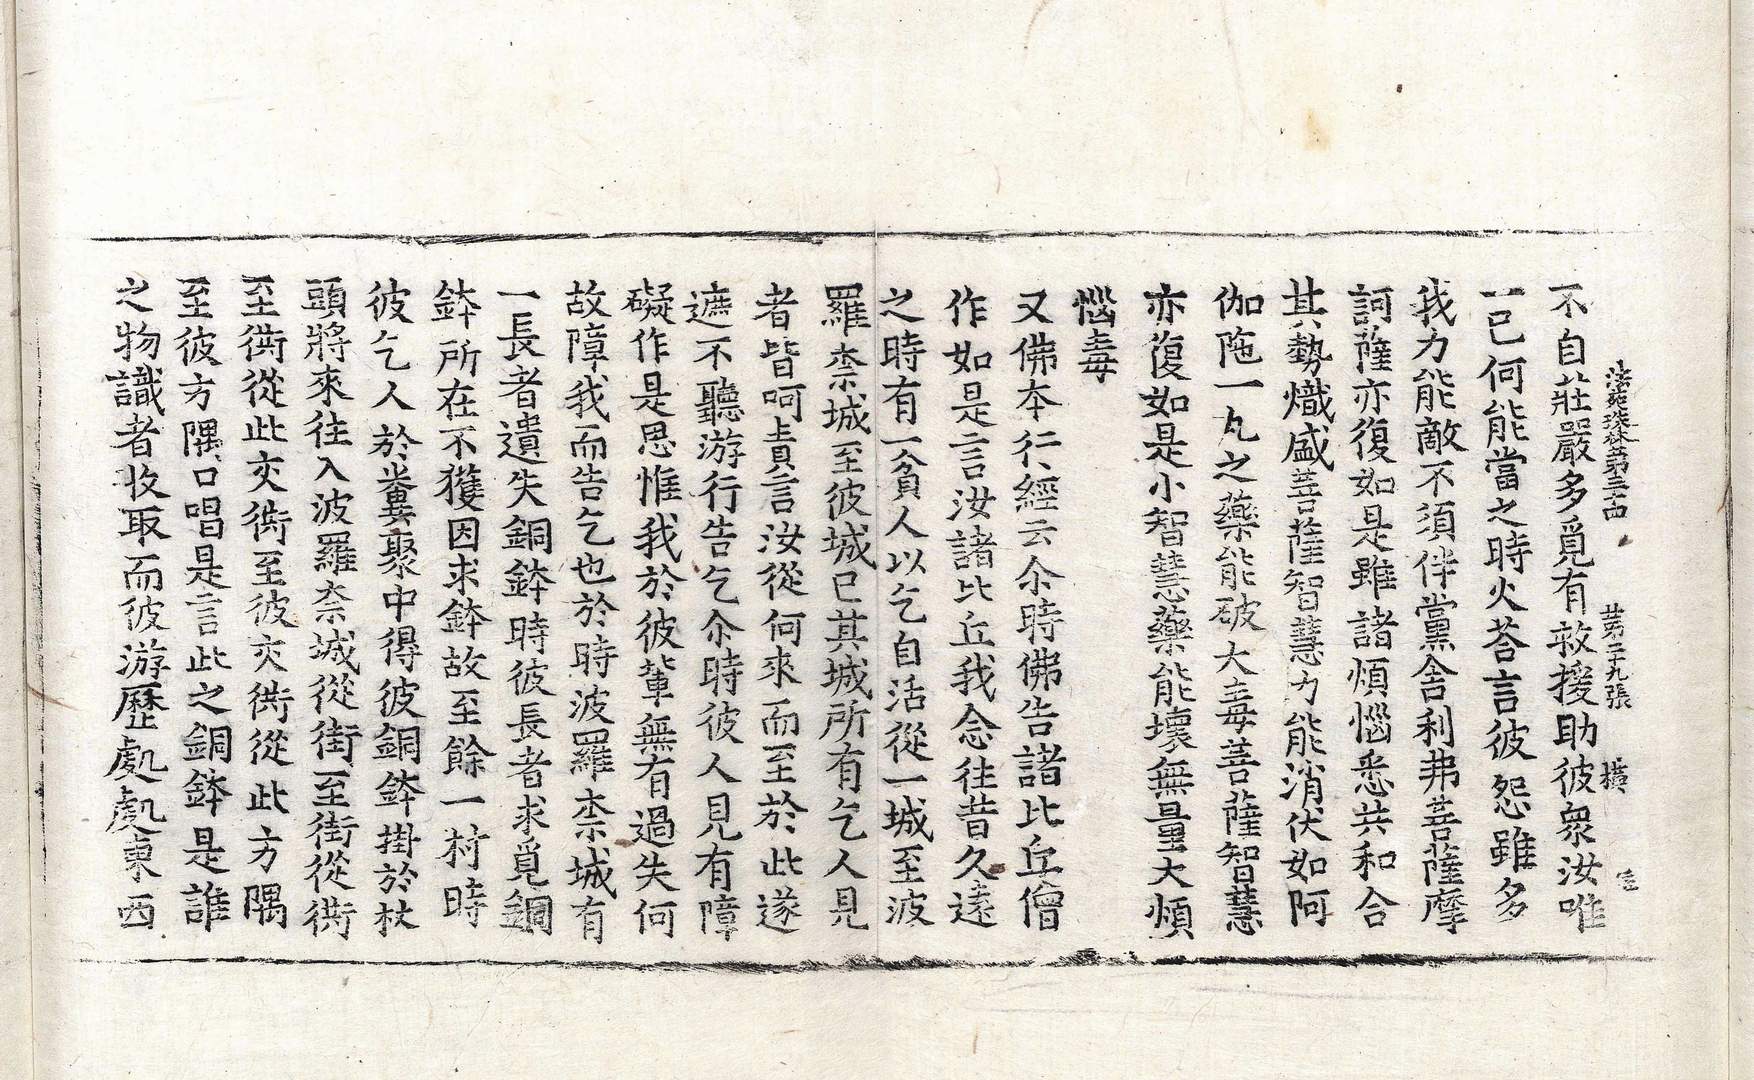 法苑珠林第三十四　第二十九張　橫
不自莊嚴多覓有救援助彼衆汝唯
一已何能當之時火荅言彼怨雖多
我力能敵不須伴黨舍利弗菩薩摩
訶薩亦復如是雖諸煩惱悉共和合
其勢熾盛菩薩智慧力能消伏如阿
伽陁一丸之藥能破大毒菩薩智慧
亦復如是小智慧藥能壞無量大煩
惱毒
又佛本行經云尒時佛告諸比丘僧
作如是言汝諸比丘我念往昔久遠
之時有一貧人以乞自活從一城至波
羅柰城至彼城已其城所有乞人見
者皆呵責言汝從何來而至於此遂
遮不聽游行告乞尒時彼人見有障
礙作是思惟我於彼輩無有過失何
故障我而告乞也於時波羅柰城有
一長者遺失銅鉢時彼長者求覓銅
鉢所在不獲因求鉢故至餘一村時
彼乞人於糞聚中得彼銅鉢掛於杖
頭將來往入波羅柰城從街至街從衖
至衖從此交衖至彼交衖從此方隅
至彼方隅口唱是言此之銅鉢是誰
之物識者收取而彼游歷處處東西